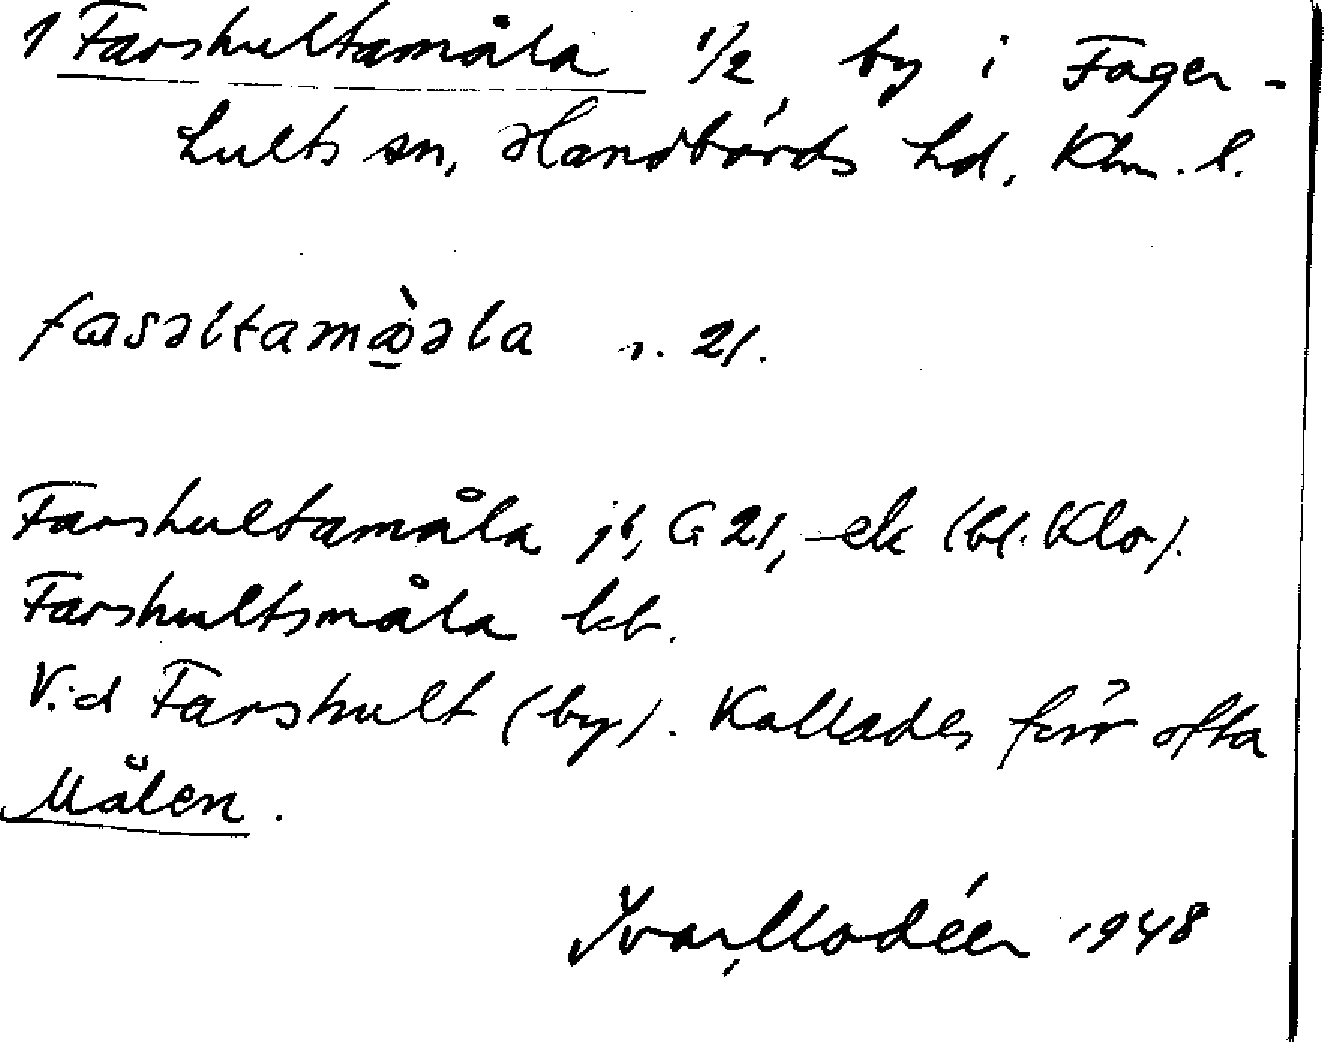 1 Farshultamåla 1/2, by i Fager-
hults sn, Handbörds hd, Klm. l.
fasəltamà̱əla s. 21.
Farshultamåla jb, G 21, ek (bl. Klo).
Farshultsmåla kb.
Vid Farshult (by). Kallades förr ofta
Målen.
Ivar Modéer 1948